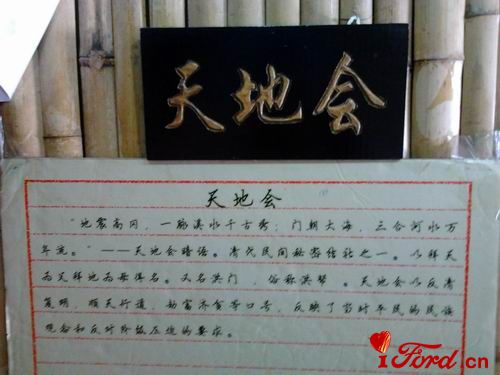 天地会
天地会
"地震高冈,一脉溪水千古秀;门朝大海,三合河水万
年流。"——天地会暗语。清代民间秘密结社之一。以拜天
为父拜地为母得名。又名洪门,俗称洪帮。天地会以反清
复明,顺天行道,劫富济贫等口号,反映了当时平民的民族
观念和反对阶级压迫的要求。
iFord.cn